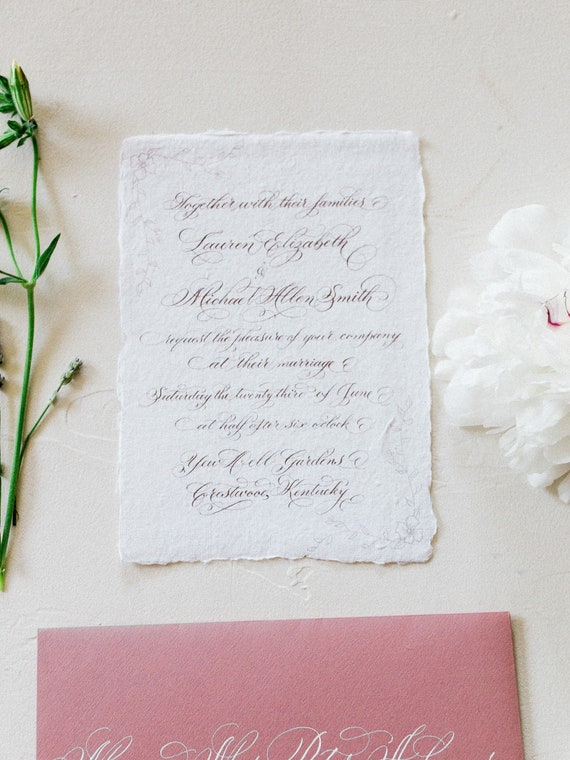 Together with their families
Lauren Elizabeth
&
Michael Allen Smith
request the pleasure of your company
at their marriage
Saturday the twenty third of June
at half after six o'clock
Yew Dell Gardens
Crestwood, Kentucky